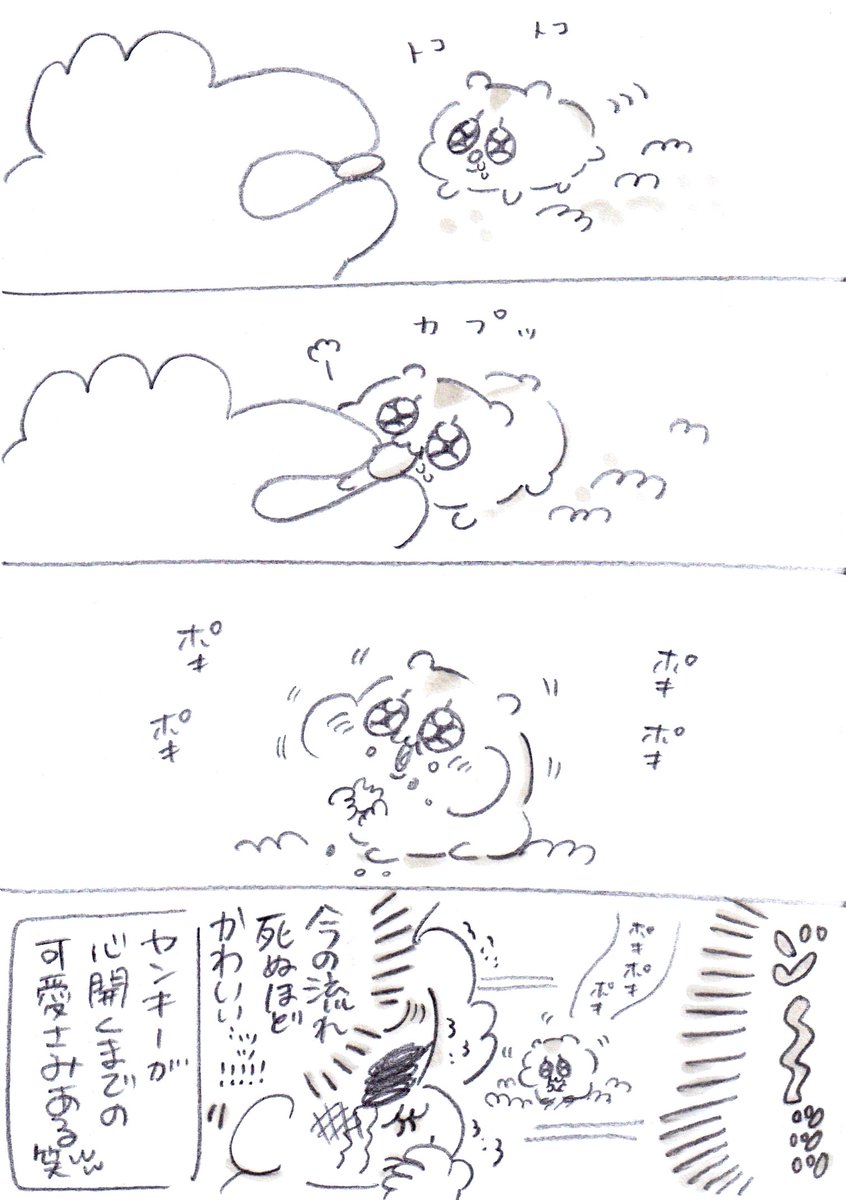 トコ
トコ
カプッ
ポキ
ポキ
ポキ
ポキ
ポキ
ポキ
ポキ
今の流れ
死ぬほど
かわいい…!!!!!
ヤンキーが
心開くまでの
可愛さみある笑